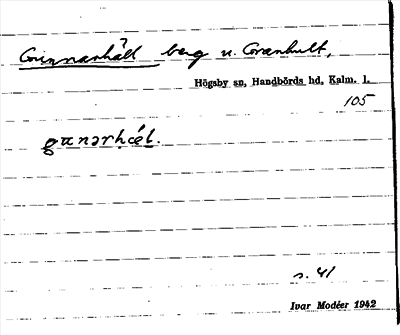 Grinnanhäll berg v. Granhult,
Högsby sn, Handbörds hd, Kalm. l.
105
s. 41
Ivar Modéer 1942